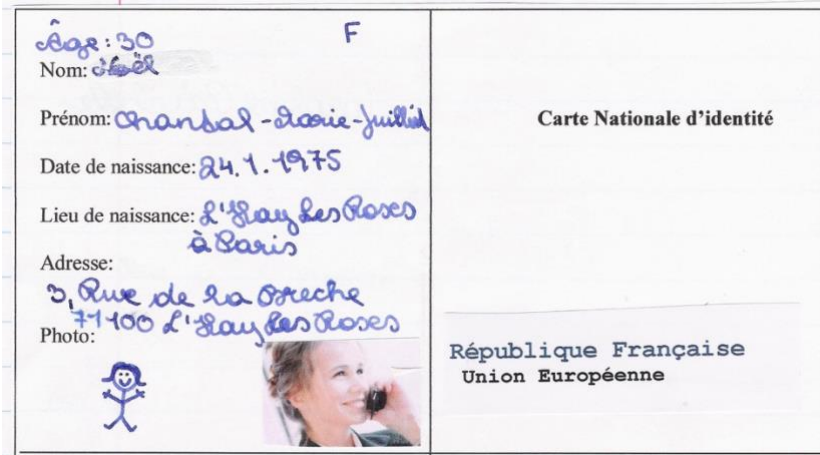 Âge: 30
F
Nom: Noël
Prénom: Chantal-Marie-Juillet
Date de naissance: 24.1.1975
Lieu de naissance: L'Hay Les Roses
à Paris
Adresse:
3, Rue de la Breche
71100 L'Hay Les Roses
Photo:
Carte Nationale d'identité
République Française
Union Européenne